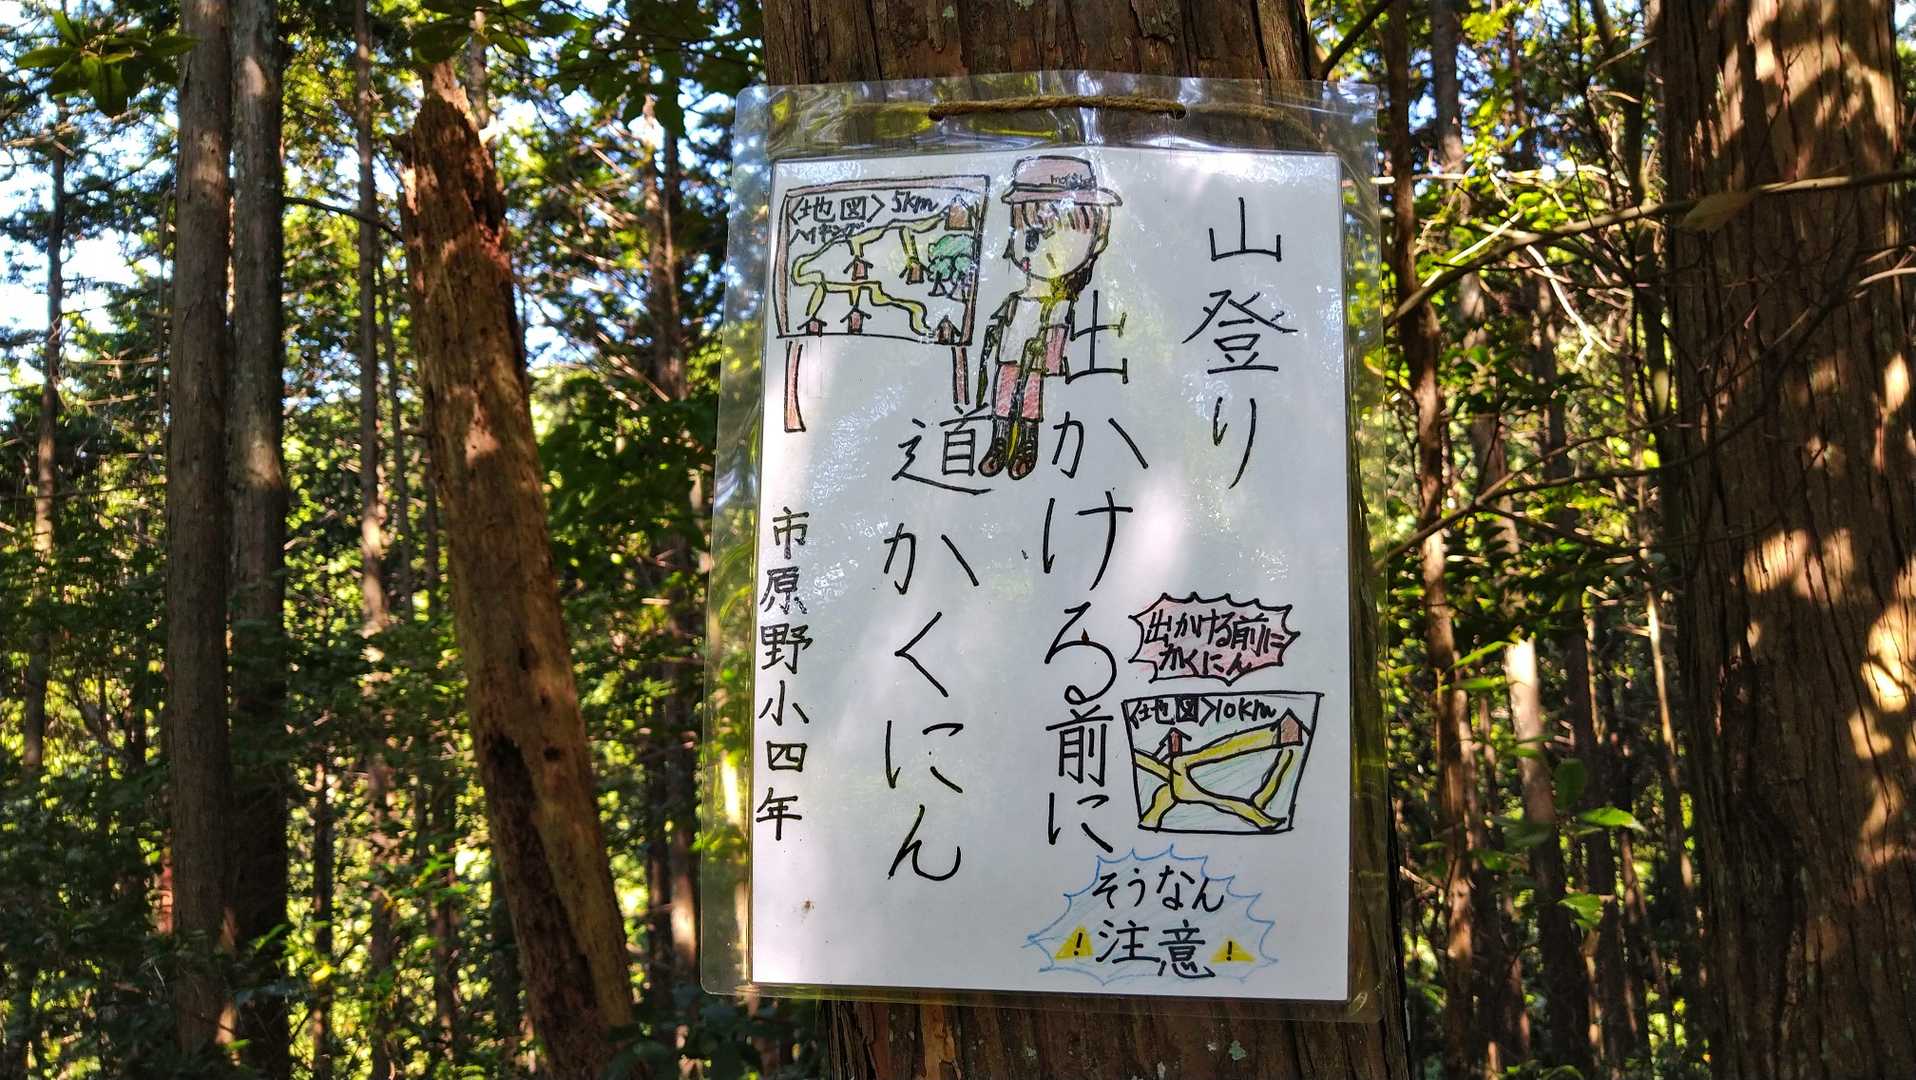 山登り
出かける前に
道かくにん
市原野小四年
〈地図〉5km
ハイキング
出かける前に
かくにん
〈地図〉10km
そうなん
注意